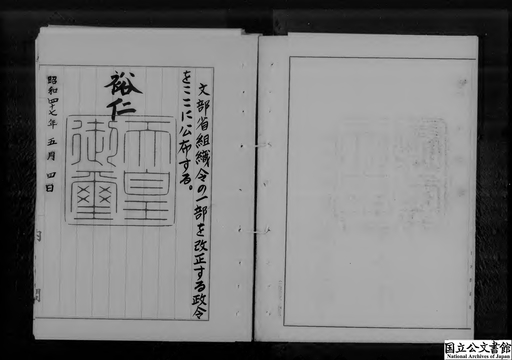 文部省組織令の一部を改正する政令
をここに公布する。
裕仁
天皇
御璽
昭和四十七年 五月 四日
国立公文書館
National Archives of Japan